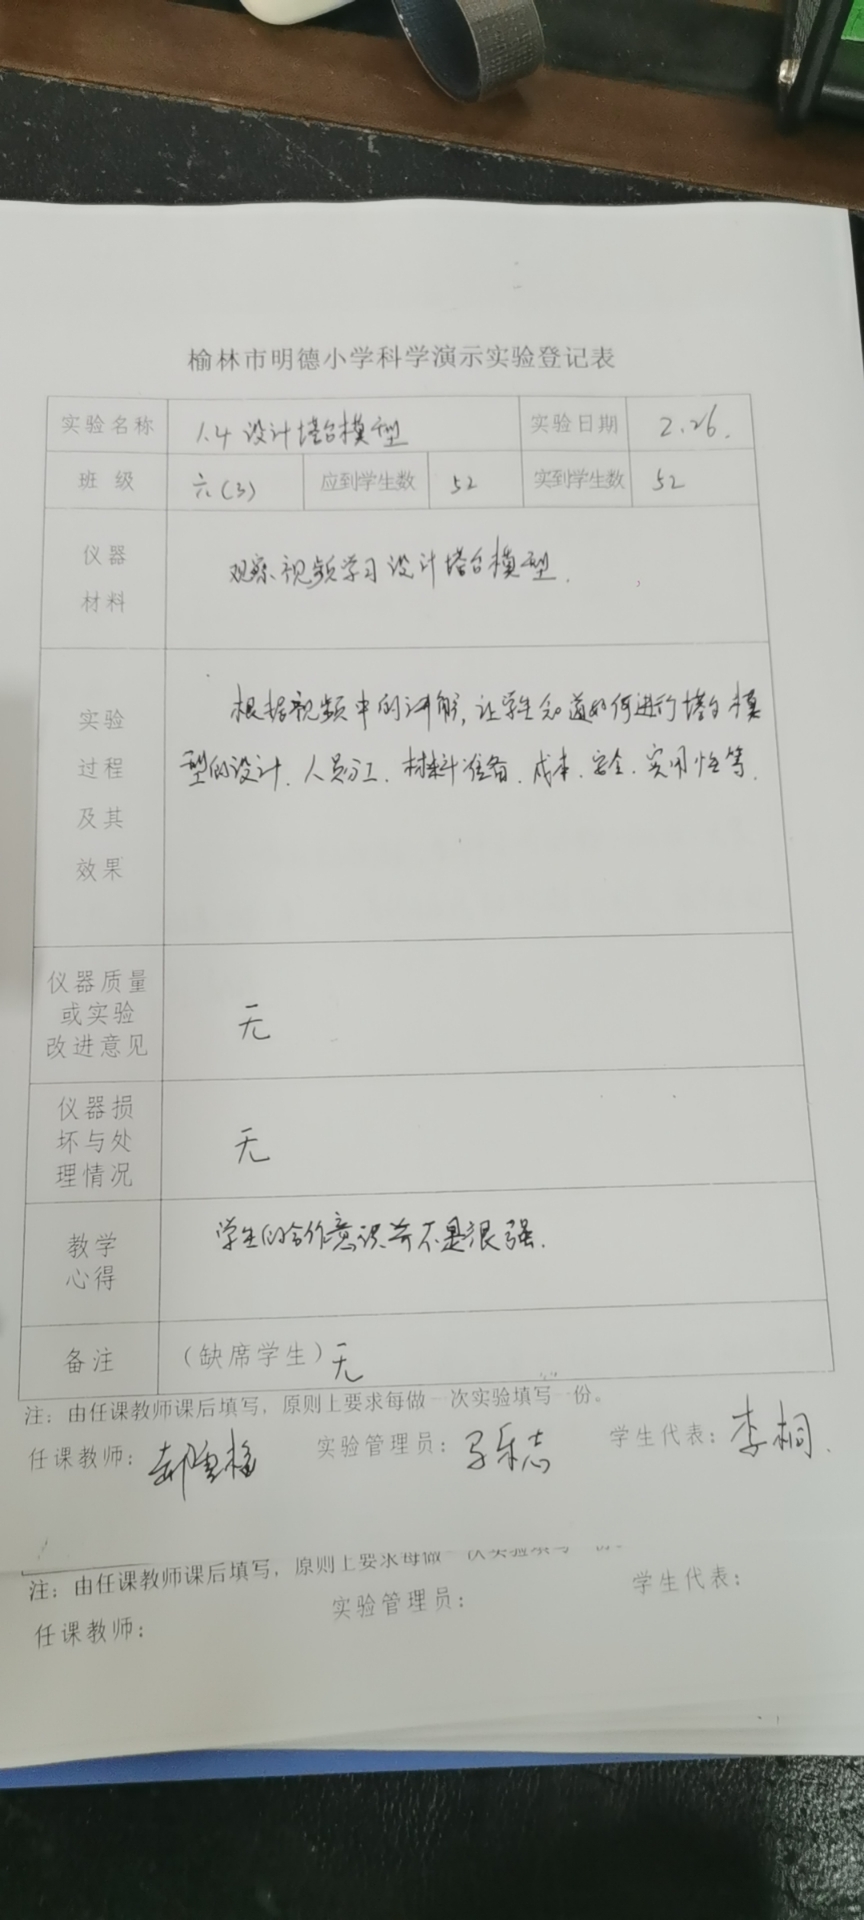 榆林市明德小学科学演示实验登记表
实验名称 1.4 设计塔台模型 实验日期 2.26.
班级 六(3) 应到学生数 52 实到学生数 52
仪器
材料
观察视频学习设计塔台模型.
实验
过程
及其
效果
根据视频中的讲解,让学生知道如何进行塔台模
型的设计、人员分工、材料准备、成本、安全、实用性等.
仪器质量
或实验
改进意见
无
仪器损
坏与处
理情况
无
教学
心得
学生的合作意识并不是很强.
备注 (缺席学生)无
注:由任课教师课后填写,原则上要求每做一次实验填写一份。
任课教师: 实验管理员: 学生代表:李桐.
注:由任课教师课后填写,原则上要求每做一次实验填写一份。
任课教师: 实验管理员: 学生代表: